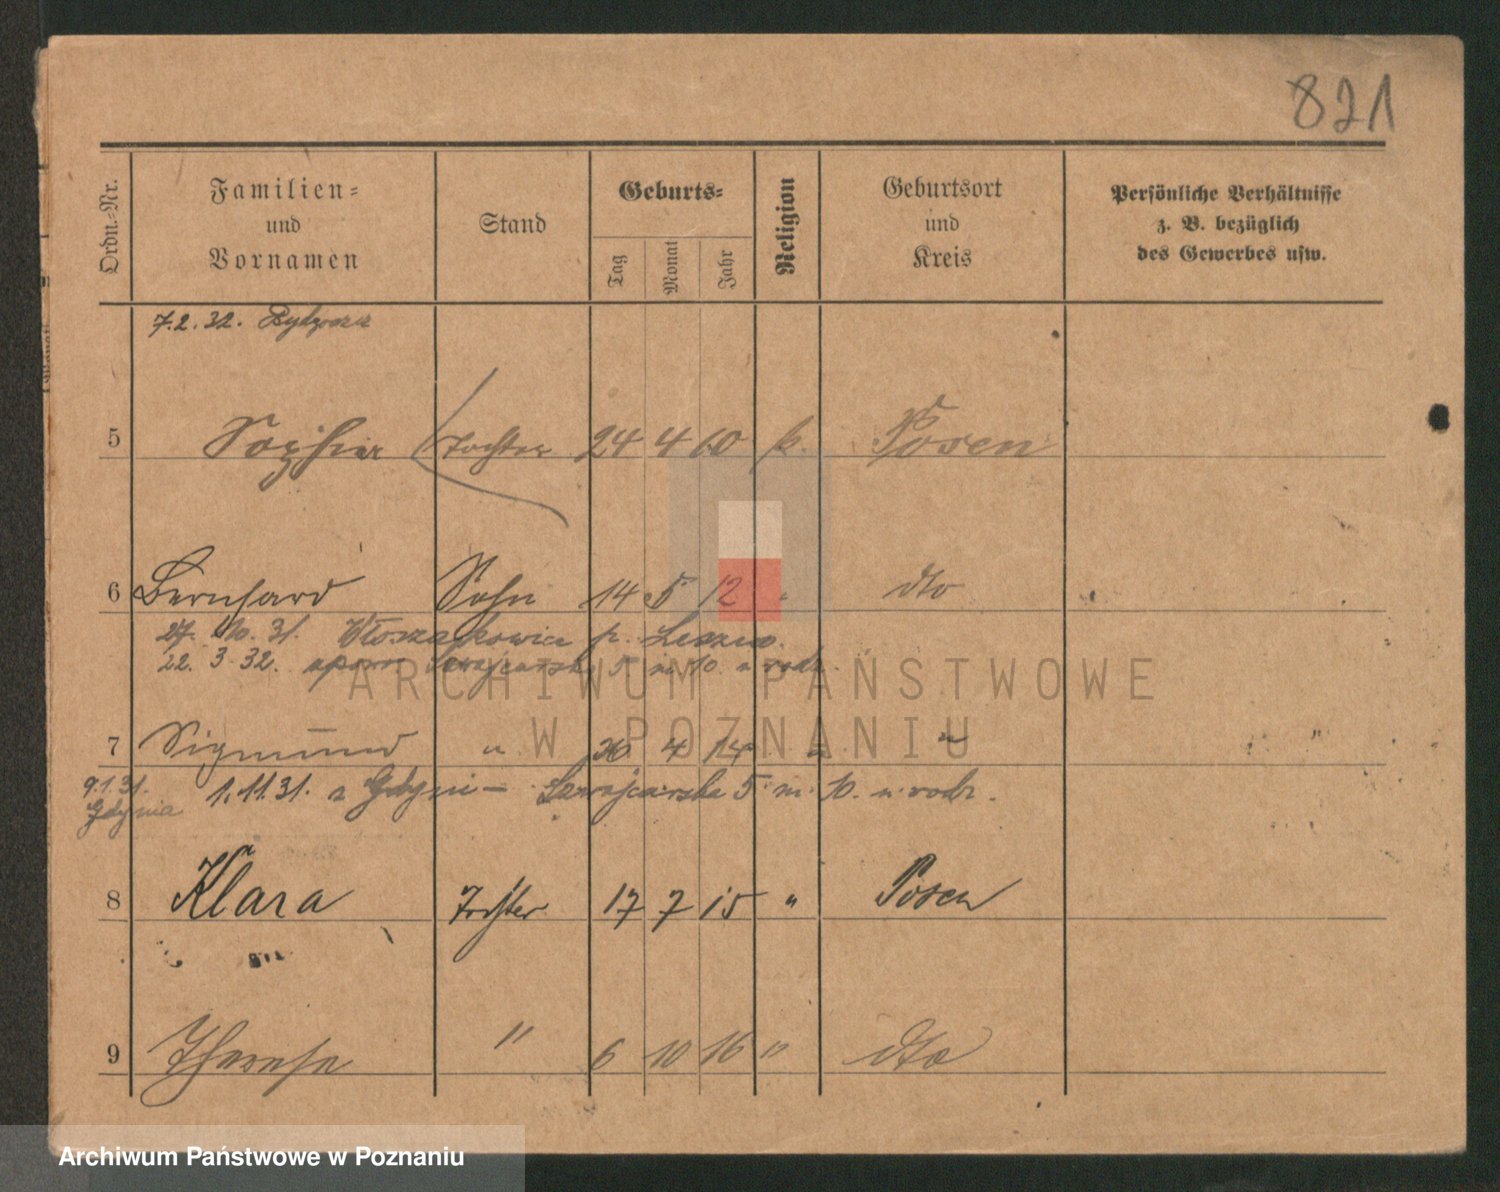 821
Ordn.-Nr.
Familien-
und
Vornamen
Stand
Geburts-
Tag
Monat
Jahr
Religion
Geburtsort
und
Kreis
Persönliche Verhältnisse
z. B. bezüglich
des Gewerbes usw.
7.2.32. Bydgoszcz
5 Tochter 24 4 10 k. Posen
6 Bernhard Sohn 14 5 12 " dto
27. 10. 31. Włoszakowice p. Leszno.
22. 3. 32. Szwajcarska 5 m 10. u rodz.
7 Sigmund " 26 4 14 " "
9.1.31. 1.11.31. z Gdyni - Szwajcarska 5 m. 10. u rodz.
Gdynia
8 Klara Tochter 17 7 15 " Posen
9 Therese " 6 10 16 " dto
ARCHIWUM PAŃSTWOWE
W POZNANIU
Archiwum Państwowe w Poznaniu